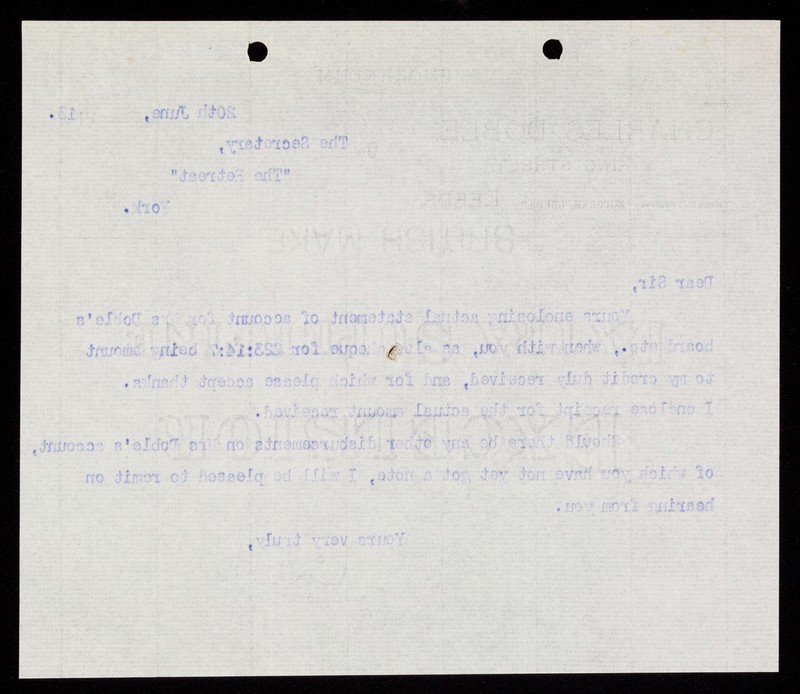 MEMORANDUM
CHARLES DOBLE
KING STREET
LEEDS,
BRITISH MAKE
20th June, 13.
The Secretary,
"The Retreat"
York.
Dear Sir,
Yours enclosing actual statement of account for Mrs Doble's
board etc., when with you, as also cheque for £23:14:7 being amount
to my credit duly received, and for which please accept thanks.
I enclose receipt for the actual amount received.
Should there be any other disbursements on Mrs Doble's account,
of which you have not yet got a note, I will be pleased to remit on
hearing from you.
Yours very truly,